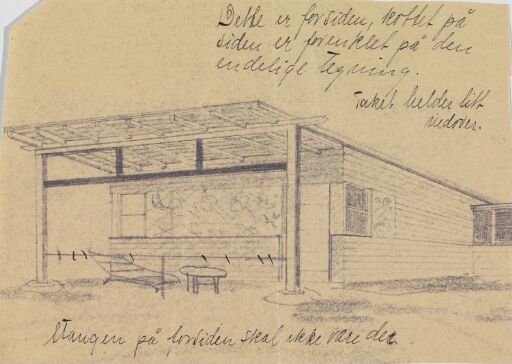 Dette er forsiden, kottet på
siden er forenklet på den
endelige tegning.
Taket helder litt
nedover.
Stangen på forsiden skal ikke være der.